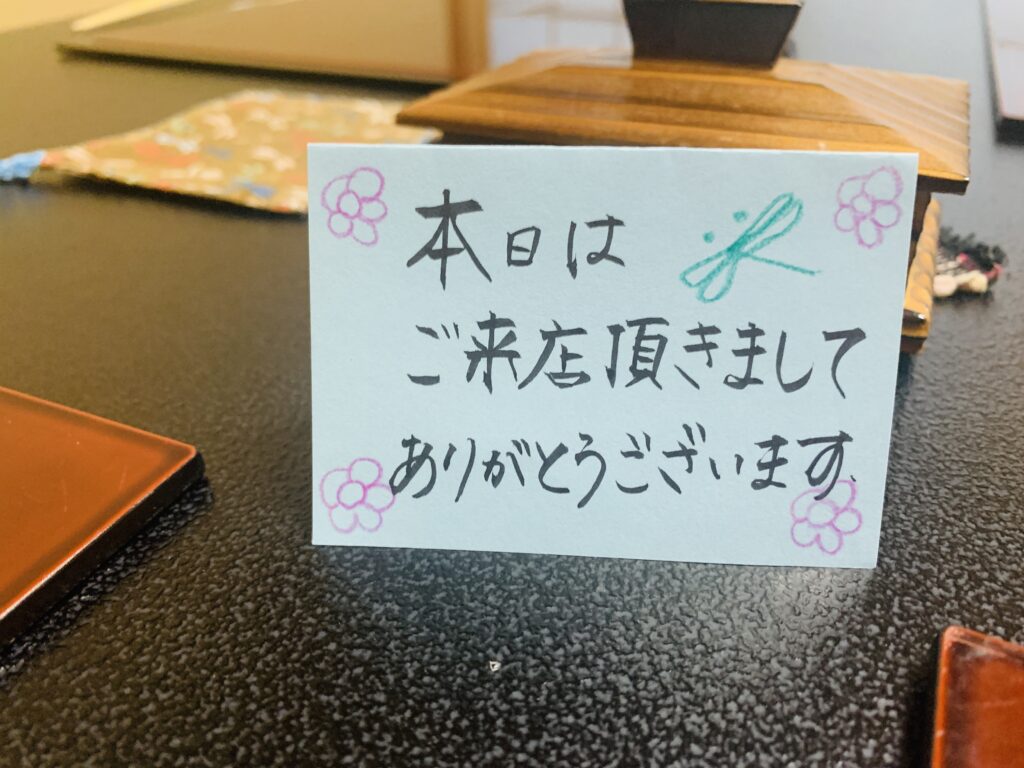 本日は
ご来店頂きまして
ありがとうございます、